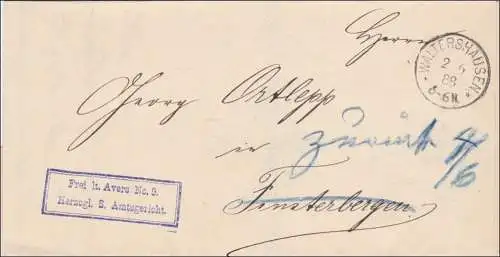 Herrn
WALTERSHAUSEN
2 6
88
5-6N.
Georg Ortlepp
in
zurück 4/6
Finsterbergen.
Frei lt. Avers No. 9.
Herzogl. S. Amtsgericht.